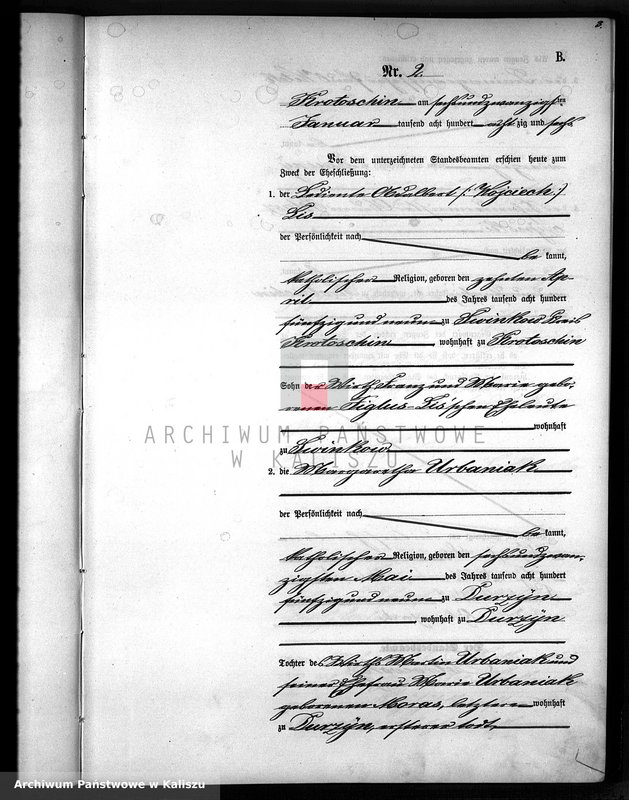 B.
Nr. 2.
Krotoschin am sechsundzwanzigsten
Januar tausend acht hundert achtzig und sechs
Vor dem unterzeichneten Standesbeamten erschien heute zum
Zweck der Eheschließung:
1. der Bediente Adalbert (: Wojciech :)
Lis
der Persönlichkeit nach
be kannt,
katholischer Religion, geboren den zehnten Ap-
ril des Jahres tausend acht hundert
fünfzig und neun zu Swinkow Kreis
Krotoschin, wohnhaft zu Krotoschin
Sohn der Wirth Franz und Marie gebo-
renen Figlus-Lis'schen Eheleute
wohnhaft
zu Swinkow
2. die Margaretha Urbaniak
der Persönlichkeit nach
be kannt,
katholischer Religion, geboren den sechsundzwan-
zigsten Mai des Jahres tausend acht hundert
fünfzig und neun zu Durzÿn
, wohnhaft zu Durzÿn
Tochter des Wirths Martin Urbaniak und
seiner Ehefrau Marie Urbaniak
geborenen Moras, letztere wohnhaft
zu Durzÿn, ersterer todt,
ARCHIWUM PAŃSTWOWE
W KALISZU
Archiwum Państwowe w Kaliszu